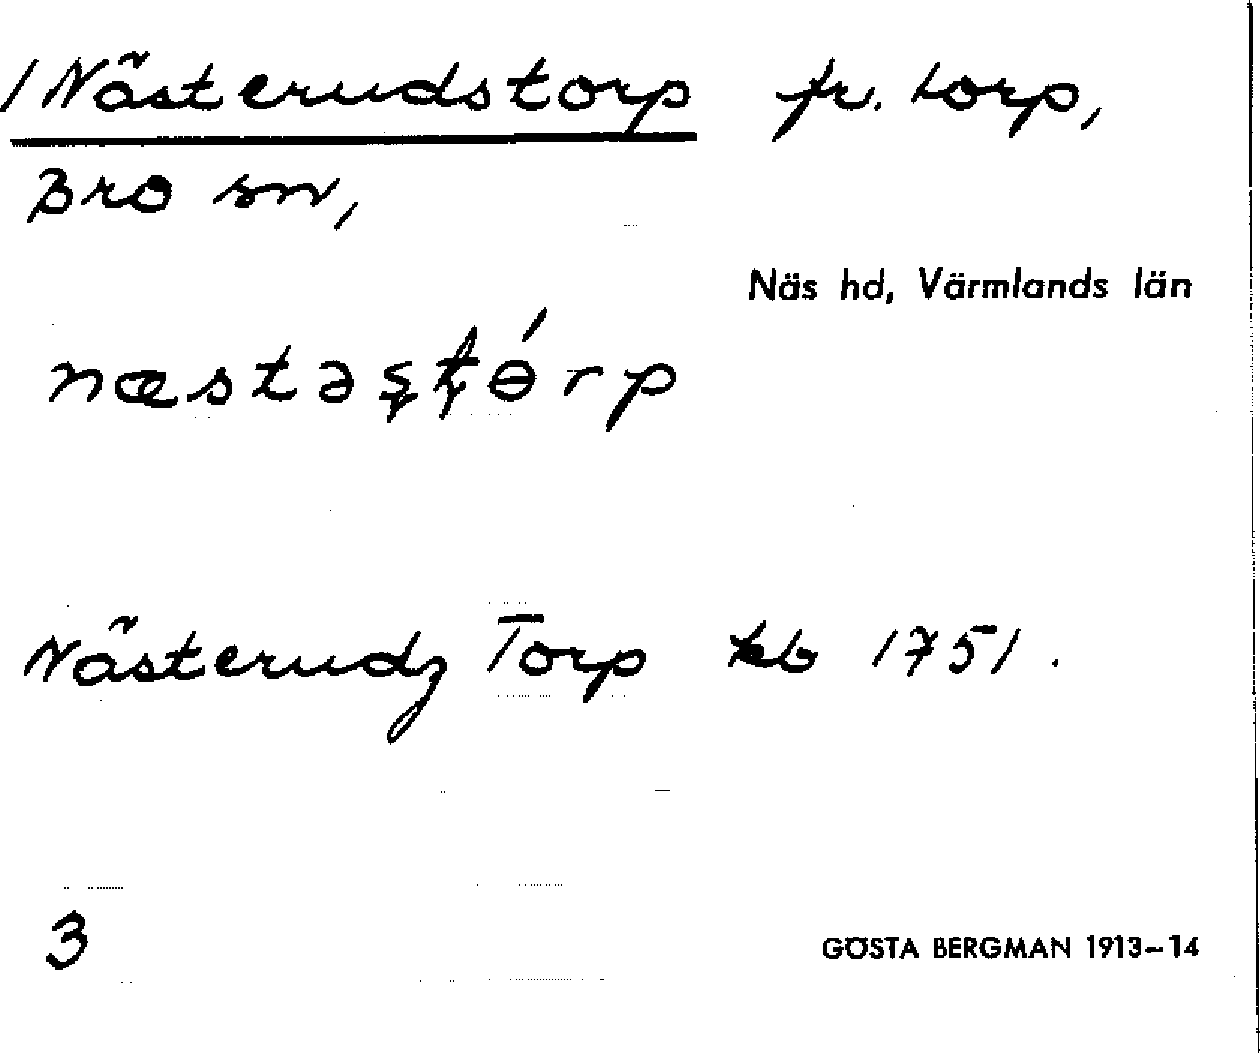 /Nästerudstorp fr. torp,
Bro sn,
Näs hd, Värmlands län
næstəʂʈɵ́rp
Nästerudz Torp kb 1751.
3
GÖSTA BERGMAN 1913–14